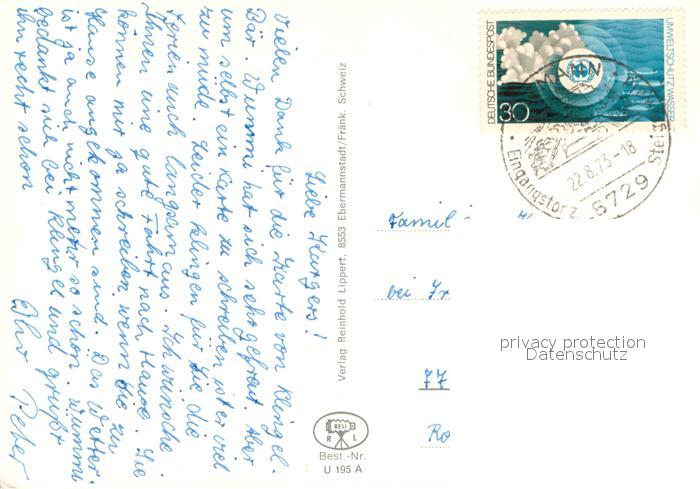 Liebe Kurgers!
Vielen Dank für die Karte von Klingel-
Bär. Wummi hat sich sehr gefreut. Aber
um selbst ein Karte zu schreiben ist er viel
zu müde. Leider klingen für Sie die
Ferien auch langsam aus. Ich wünsche
Ihnen eine gute Fahrt nach Hause. Sie
können mir ja schreiben wenn Sie zu
Hause angekommen sind. Das Wetter
ist ja auch nicht mehr so schön. Wummi
bedankt sich bei Klingel und grüßt
ihn recht schön
Ihr Peter
Verlag Reinhold Lippert, 8553 Ebermannstadt/Fränk. Schweiz
RELI
R L
Best.-Nr.
U 195 A
DEUTSCHE BUNDESPOST
UMWELTSCHUTZ WASSER
30
22.8.73-18
Eingangstor z.
8729
Famil
bei
77
Ro
privacy protection
Datenschutz